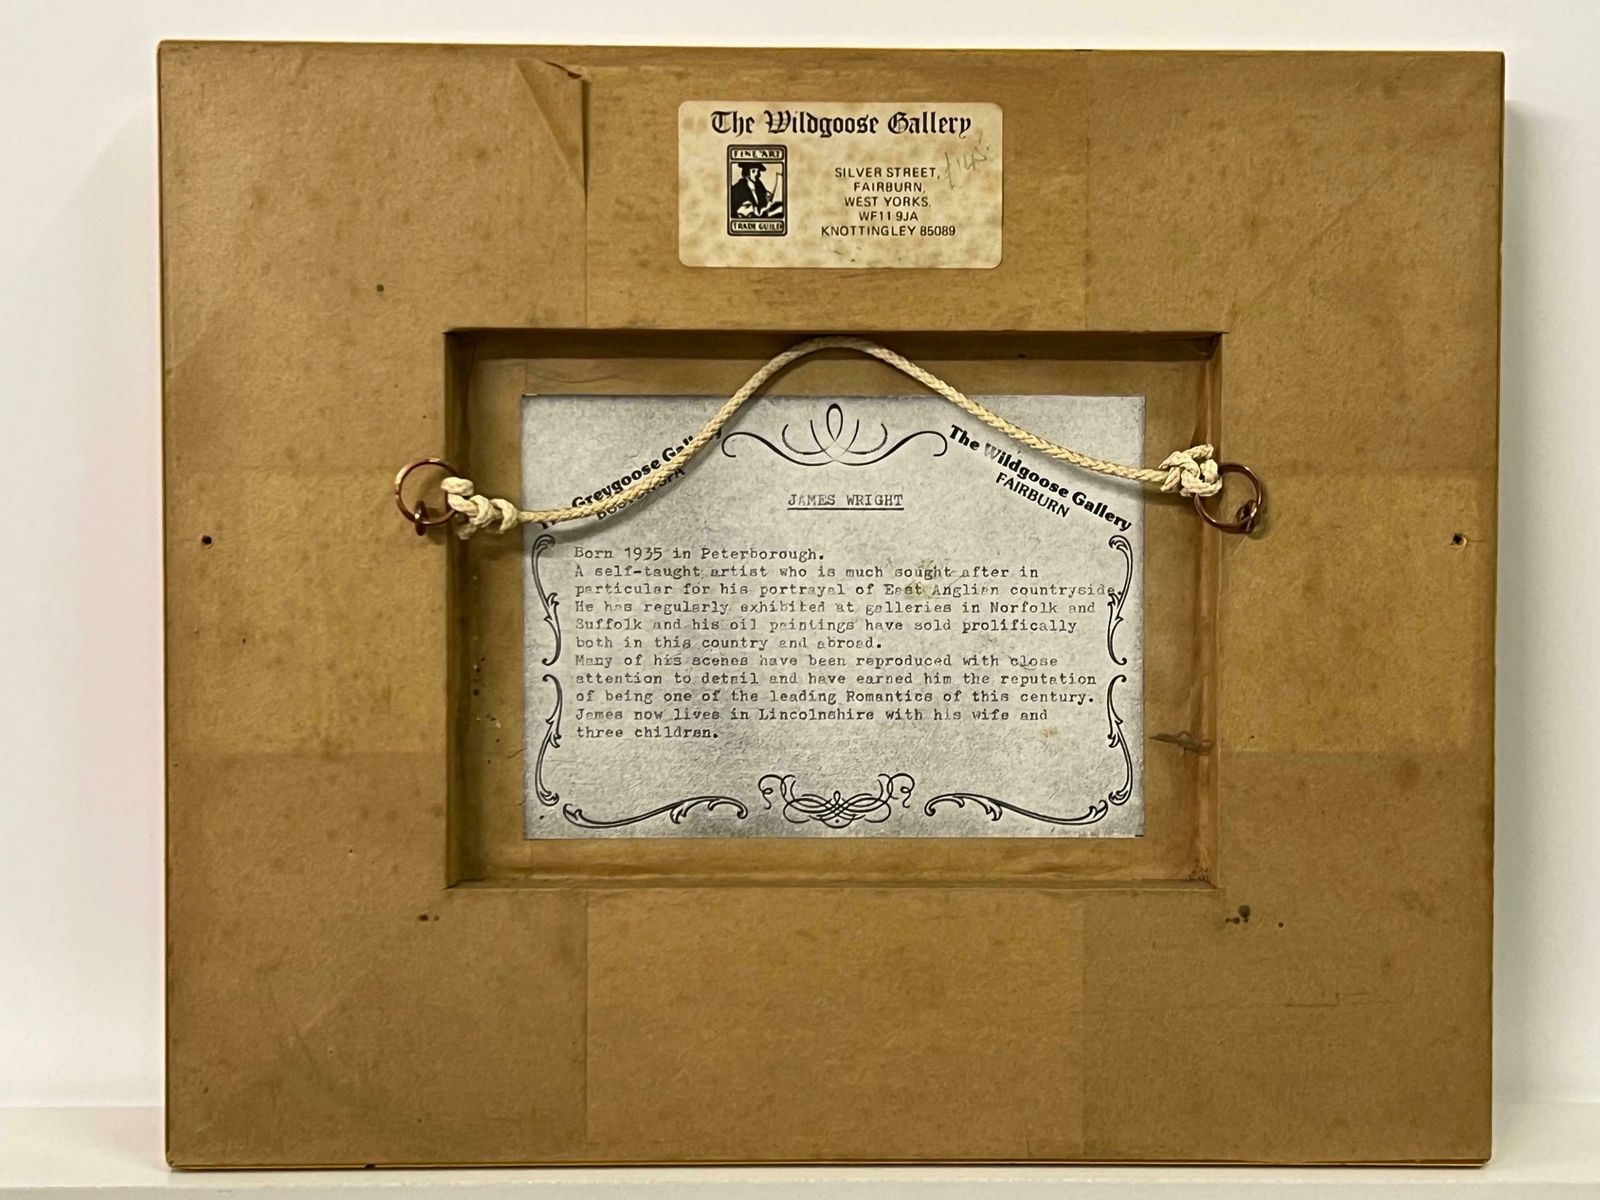 The Wildgoose Gallery
FINE ART
TRADE GUILD
SILVER STREET,
FAIRBURN,
WEST YORKS.
WF11 9JA
KNOTTINGLEY 85089
Greygoose
The Wildgoose Gallery
FAIRBURN
JAMES WRIGHT
Born 1935 in Peterborough.
A self-taught artist who is much sought after in
particular for his portrayal of East Anglian countryside.
He has regularly exhibited at galleries in Norfolk and
Suffolk and his oil paintings have sold prolifically
both in this country and abroad.
Many of his scenes have been reproduced with close
attention to detail and have earned him the reputation
of being one of the leading Romantics of this century.
James now lives in Lincolnshire with his wife and
three children.